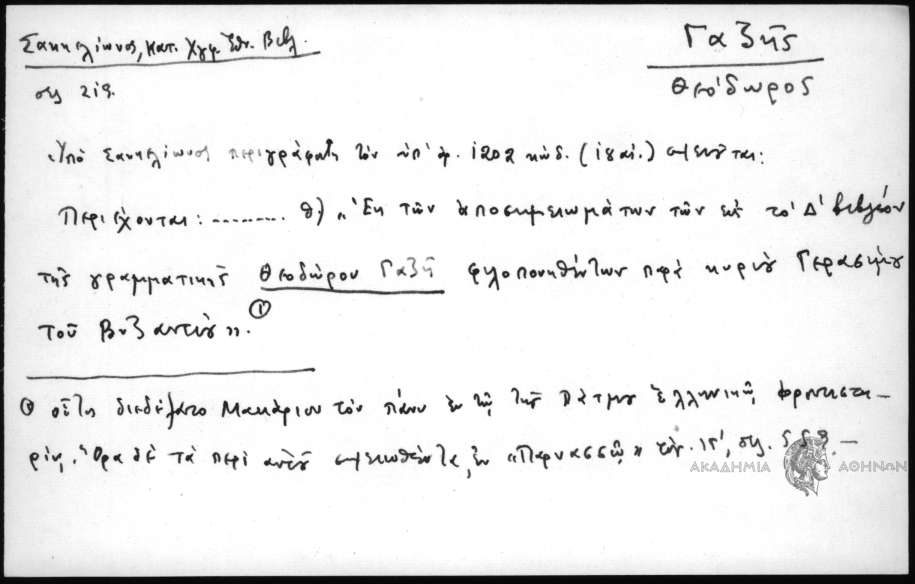 Σακκελίωνος, Κατ. Χγφ. Ἐθν. Βιβλ.
Γαζῆς
Θεόδωρος
σελ. 219.
Ὑπὸ Σακκελίωνος περιγράφοντος τὸν ὑπ' ἀρ. 1202 κώδ. (18 αἰ.) σημειοῦται:
Περιέχονται: ......... θ) „Ἐκ τῶν ἀποσημειωμάτων τῶν εἰς τὸ Δ' βιβλίον
τῆς γραμματικῆς Θεοδώρου Γαζῆ φιλοπονηθέντων παρὰ κυρίου Γερασίμου
τοῦ Βυζαντίου». ①
① οὗτος διεδέξατο Μακάριον τὸν πάνυ ἐν τῇ τῆς Πάτμου ἑλληνικῇ φροντιστη-
ρίῳ. Ὅρα δὲ τὰ περὶ αὐτοῦ σημειωθέντα ἐν «Παρνασσῷ» τόμ. ΙΓ', σελ.
ΑΚΑΔΗΜΙΑ ΑΘΗΝΩΝ